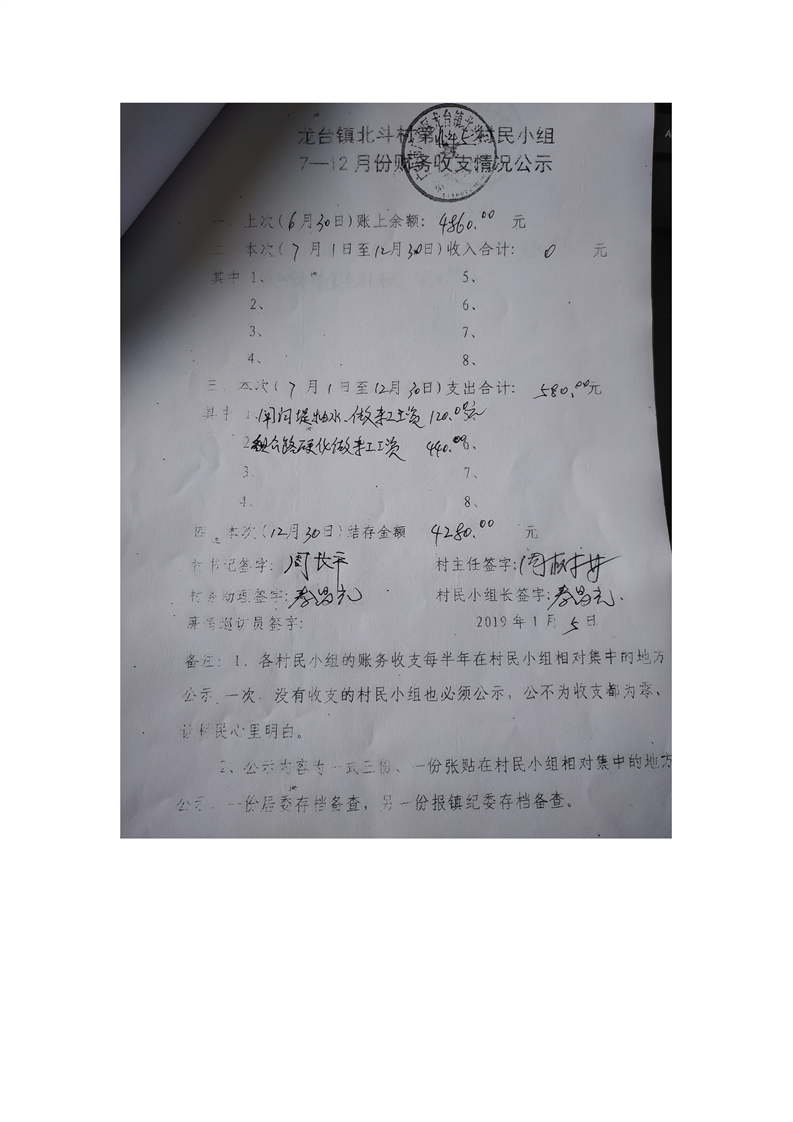 龙台镇北斗村第 村民小组
7—12月份账务收支情况公示
一、上次(6月30日)账上余额: 4860.00 元
二、本次(7月1日至12月30日)收入合计: 0 元
其中 1、 5、
2、 6、
3、 7、
4、 8、
三、本次(7月1日至12月30日)支出合计: 580.00元
其中 1、 抽水、做杂工工资 120.00元
2、 路硬化做杂工工资 440.00 6、
3、 7、
4、 8、
四、本次(12月30日)结存金额 4280.00 元
村书记签字: 周长平 村主任签字:
签字: 村民小组长签字:
员签字: 2019年1月5日
备注: 1、各村民小组的账务收支每半年在村民小组相对集中的地方
公示一次, 没有收支的村民小组也必须公示, 公示为收支都为零,
让村民心里明白。
2、公示内容为一式三份、一份张贴在村民小组相对集中的地方
公示、一份居委存档备查, 另一份报镇纪委存档备查。